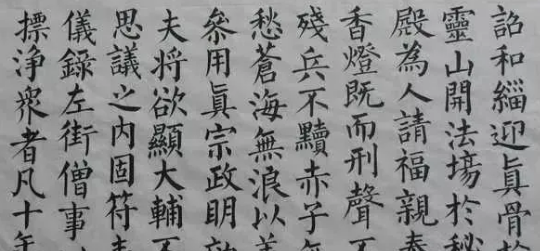 詔和緇迎眞骨於
靈山開法場於秘
殿為人請福親奉
香燈既而刑聲不
殘兵不黷赤子無
愁蒼海無浪以
叅用眞宗政明效
夫将欲顯大輔不
思議之内固符
儀錄左街僧事以
摽淨衆者凡十年